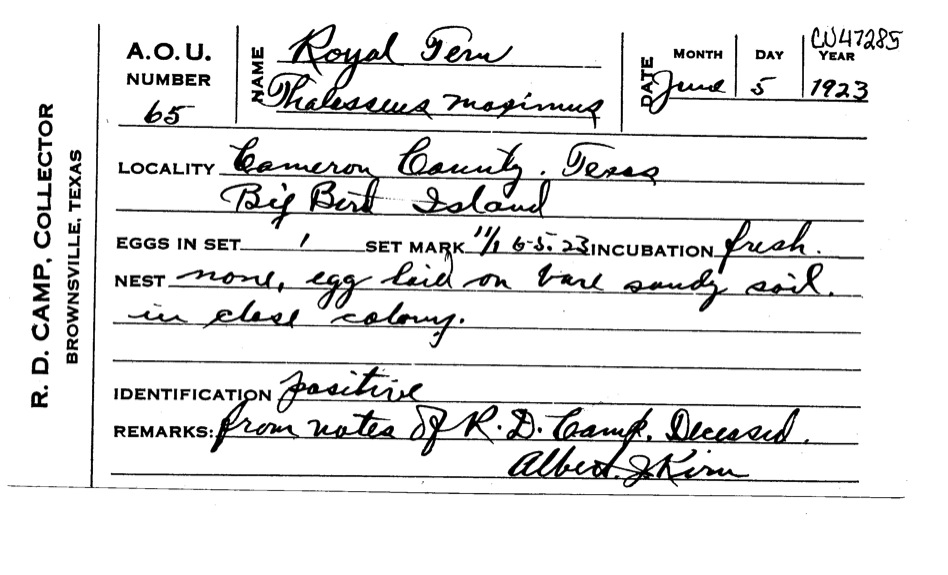 CU47285
A.O.U. NUMBER 65
NAME Royal Tern
Thalesseus maximus
DATE MONTH June DAY 5 YEAR 1923
R. D. CAMP, COLLECTOR
BROWNSVILLE, TEXAS
LOCALITY Cameron County. Texas
Big Bird Island
EGGS IN SET 1 SET MARK 11/1 6-5.23 INCUBATION fresh.
NEST none, egg laid on bare sandy soil.
in close colony.
IDENTIFICATION positive
REMARKS: from notes of R.D. Camp. Deceased.
Albert J. Kirn